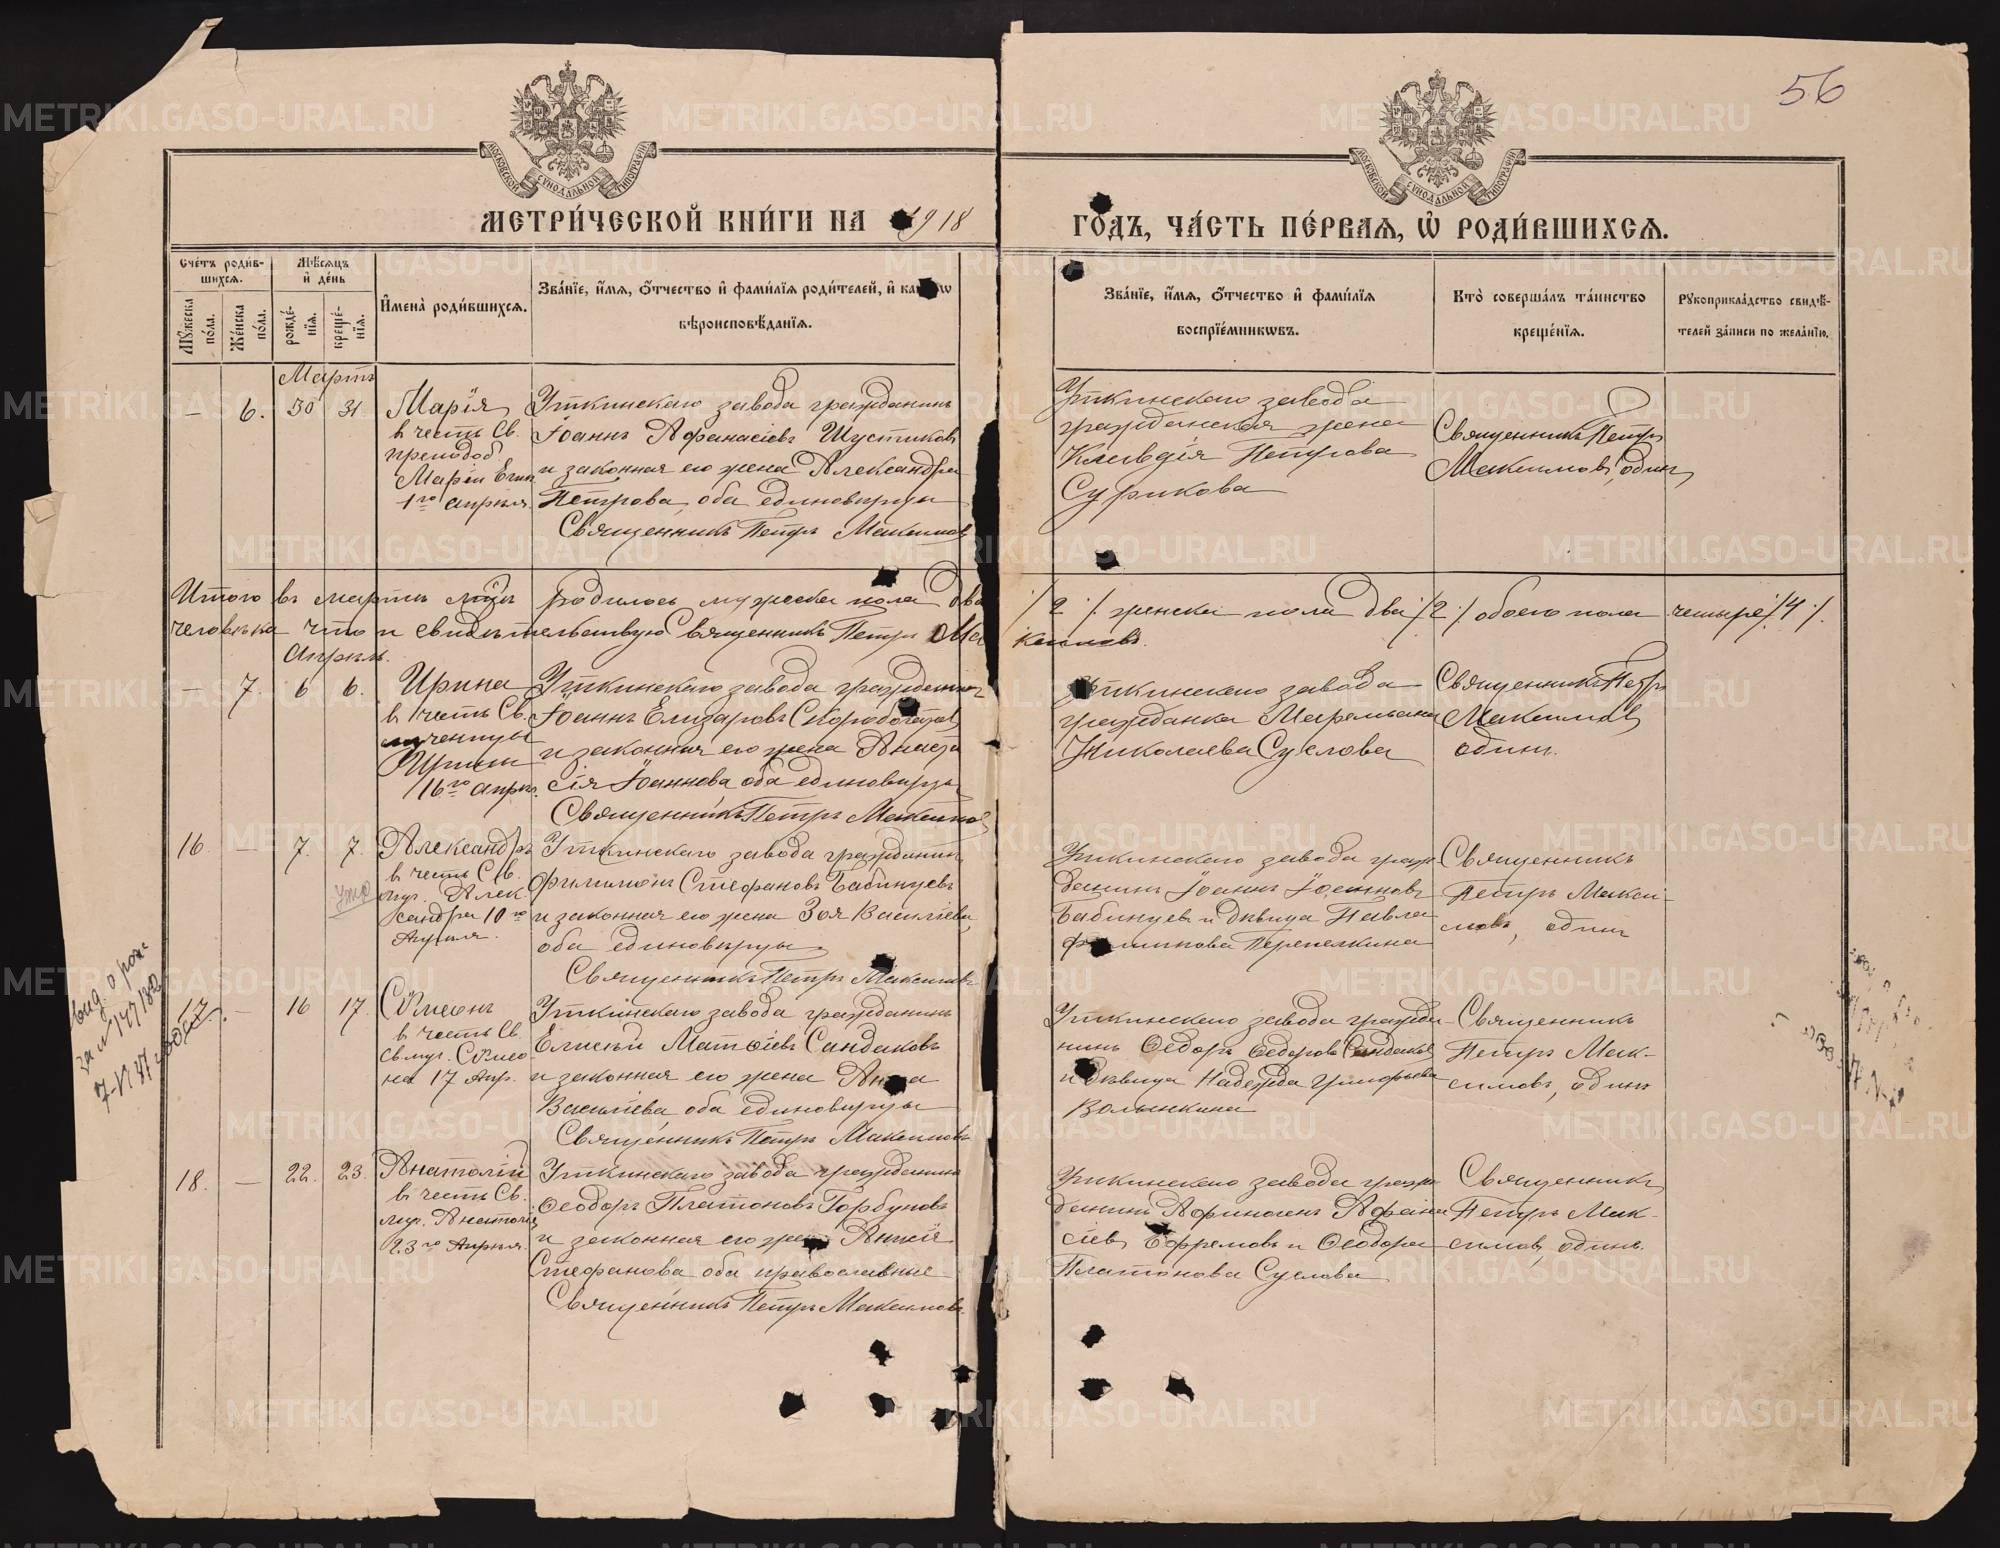 56
МОСКОВСКОЙ СѴНОДАЛЬНОЙ ТИПОГРАФІИ
МОСКОВСКОЙ СѴНОДАЛЬНОЙ ТИПОГРАФІИ
МЕТРИ́ЧЕСКОЙ КНИ́ГИ НА 1918
ГО́ДЪ, ЧА́СТЬ ПЕ́РВАѦ, Ѡ҆ РОДИ́ВШИХСѦ.
Сче́тъ роди́в-
шихсѧ.
Мꙋ́жеска по́ла.
Же́нска по́ла.
Мѣ́сѧцъ
и҆ де́нь
рожде́-
нїѧ.
креще́-
нїѧ.
И҆мена̀ роди́вшихсѧ.
Зва́нїе, и҆́мѧ, ѻ҆́тчество и҆ фами́лїѧ роди́телей, и҆
вѣроисповѣ́данїѧ.
Зва́нїе, и҆́мѧ, ѻ҆́тчество и҆ фами́лїѧ
воспрїе́мникѡвъ.
Кто̀ соверша́лъ та́инство
креще́нїѧ.
Рꙋкоприкла́дство свидѣ́-
телей за́писи по жела́нїю.
Мартъ
— 6. 30 31.
Марія
в честь Св.
преподоб.
Маріи Егип
1го апрѣля.
Уткинскаго завода гражданинъ
Іоаннъ Афанасіевъ Шустиковъ
и законная его жена Александра
Петрова, оба единовѣрцы
Священникъ Петръ Максимовъ
Уткинскаго завода
гражданская жена
Клавдія Петрова
Сурикова
Священникъ Петръ
Максимовъ, одинъ
Итого въ мартѣ мцѣ родилось мужеска пола два /2/. женска пола два /2/ обоего пола четыре /4/.
человѣка что и свидѣтельствую Священникъ Петръ Максимовъ.
Апрѣль.
— 7. 6 6.
Ирина
в честь Св.
мученицы
Ирины
16го апрѣл.
Уткинскаго завода гражданинъ
Іоаннъ Елизаровъ Скоробогатовъ
и законная его жена Анаста
сія Іоаннова оба единовѣрцы
Священникъ Петръ Максимовъ
Уткинскаго завода
гражданка Маремьяна
Николаева Суслова
Священникъ Петръ
Максимовъ
одинъ.
16. — 7. 7.
Александръ
в честь Св.
муч. Алек
сандра 10го
Апрѣля.
Уткинскаго завода гражданинъ
Филимонъ Стефановъ Бабинцевъ
и законная его жена Зоя Васильева,
оба единовѣрцы
Священникъ Петръ Максимовъ
Уткинскаго завода граж
данинъ Іоаннъ Іоанновъ
Бабинцевъ и дѣвица Павла
Перепелкина
Священникъ
Петръ Макси-
мовъ, одинъ
17. — 16 17.
Сѵмеонъ
в честь Св.
Св. муч. Сѵмео
на 17 Апр.
Уткинскаго завода гражданинъ
Елисей Матѳіевъ Сандаковъ
и законная его жена Анна
Васильева оба единовѣрцы
Священникъ Петръ Максимовъ
Уткинскаго завода гражда
нинъ Ѳедоръ Ѳедоровъ Сандаковъ
и дѣвица Надежда Григорьева
Волынкина
Священникъ
Петръ Мак-
симовъ, одинъ
18. — 22. 23.
Анатолій
в честь Св.
муч. Анатолія
23го Апрѣля.
Уткинскаго завода гражданинъ
Ѳеодоръ Платоновъ Горбуновъ
и законная его жена
Стефанова оба православные
Священникъ Петръ Максимовъ.
Уткинскаго завода граж
данинъ Афиногенъ Афана
сіевъ Ефремовъ и Ѳеодора
Платонова Суслова
Священникъ
Петръ Мак-
симовъ, одинъ.
METRIKI.GASO-URAL.RU